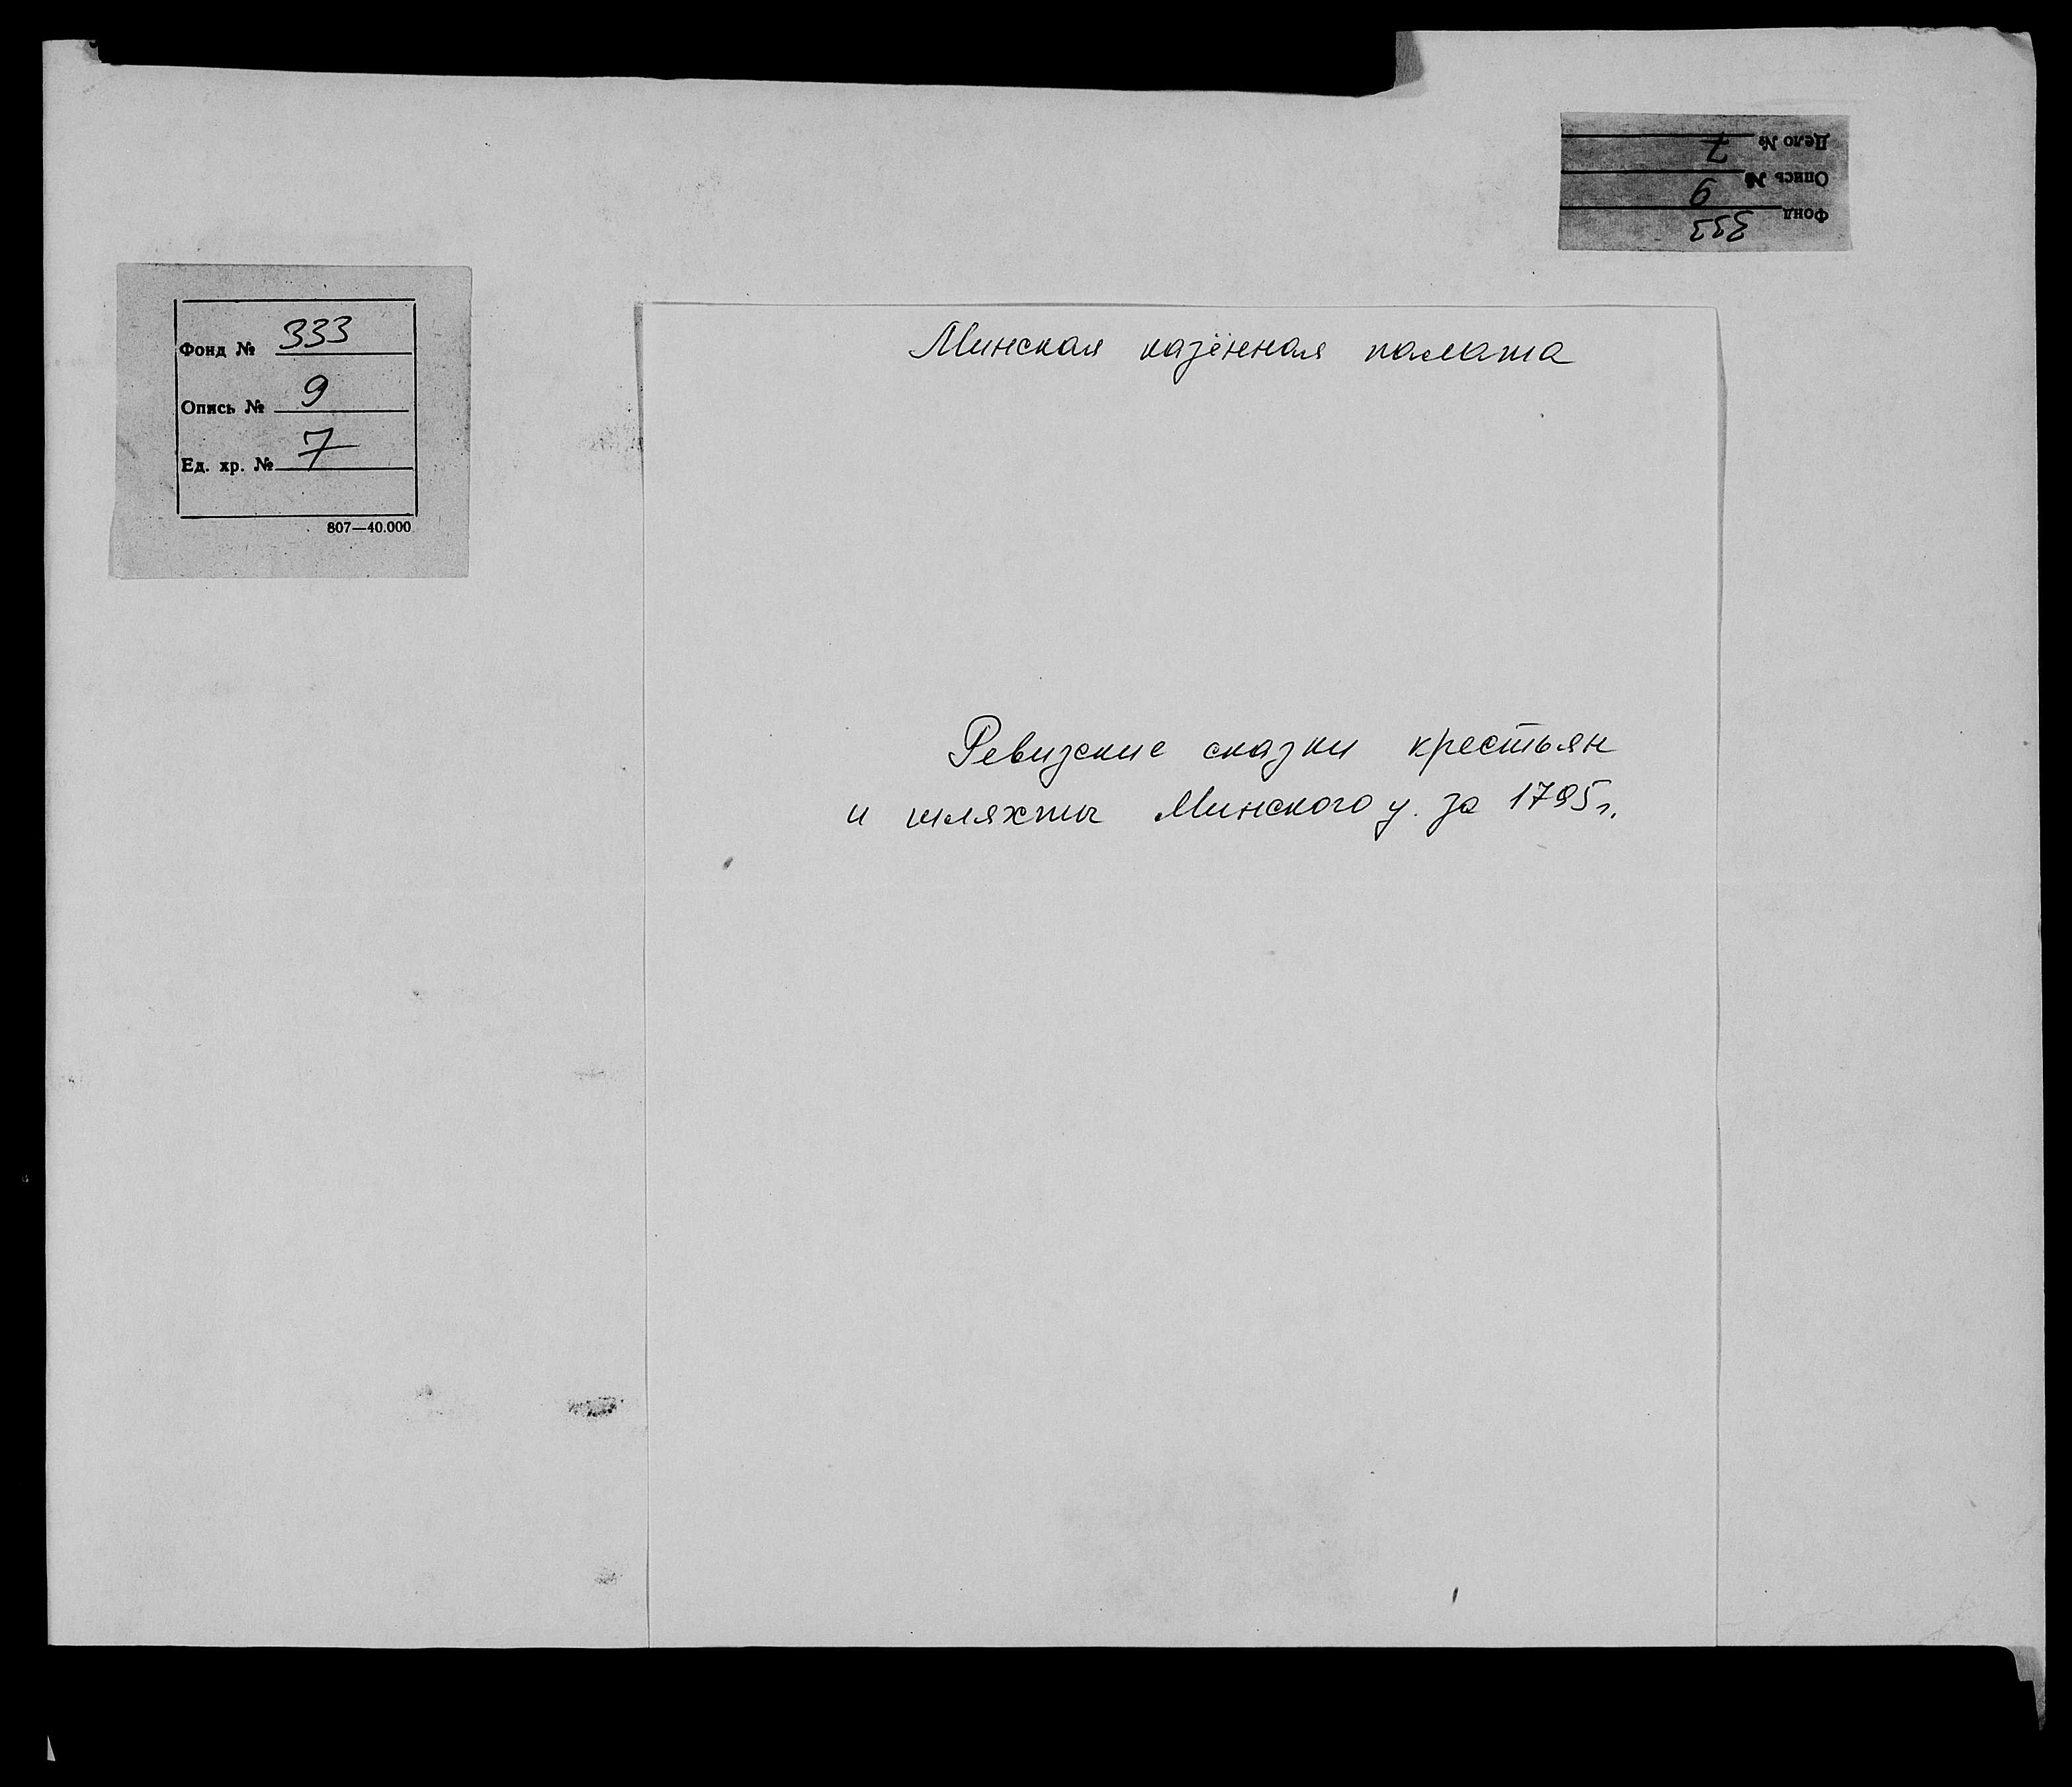 Дело № 7
Опись № 9
Фонд 333
Фонд № 333
Опись № 9
Ед. хр. № 7
807—40.000
Минская казённая палата
Ревизские сказки крестьян
и шляхты Минского у. за 1795 г.